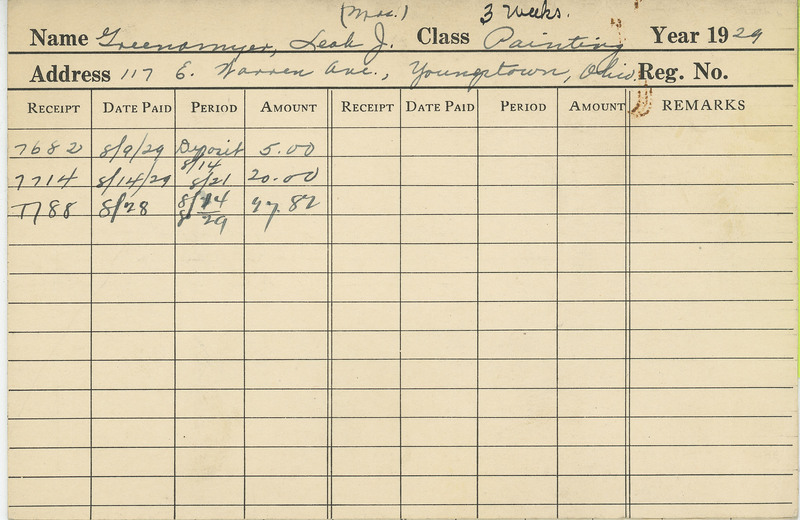 (Mrs.) 3 Weeks.
Name Greenamyer, Leah J. Class Painting Year 1929
Address 117 E. Warren Ave., Youngstown, Ohio. Reg. No.
RECEIPT DATE PAID PERIOD AMOUNT RECEIPT DATE PAID PERIOD AMOUNT REMARKS
7682 8/9/29 Deposit 5.00
7714 8/14/29 8/14 8/21 20.00
7788 8/28 8/14 8/29 .82